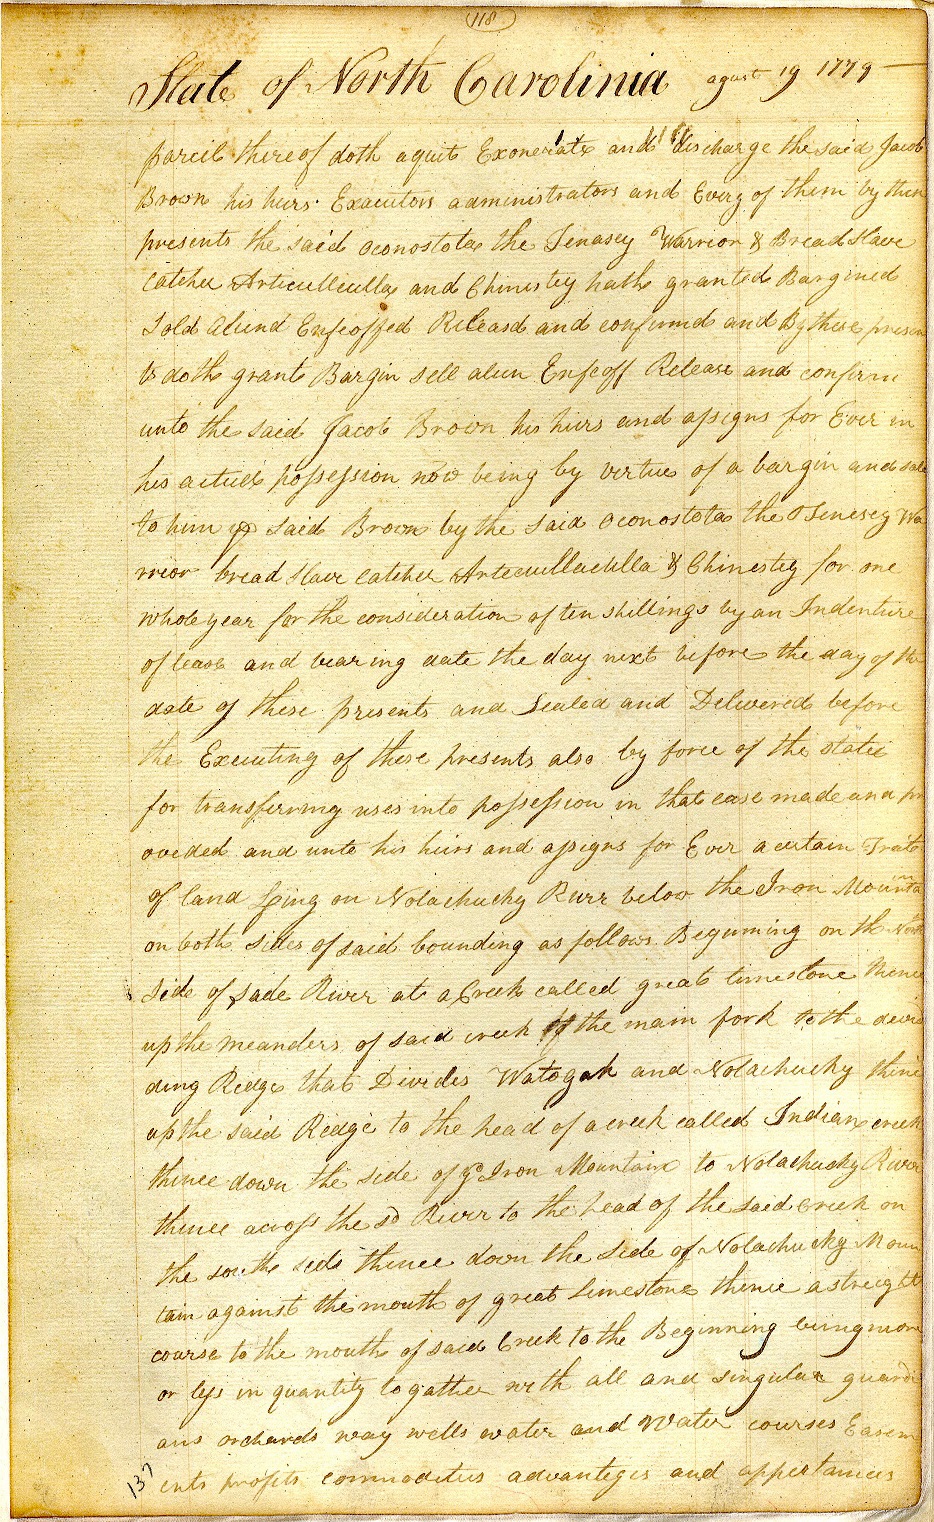 118
State of North Carolinia agust 19 1779
parcil thire of doth aquit Exonerate and discharge the said Jacob
Brown his hiirs Executors administrators and Every of them by then
presents the said oconostota the Tenasey Warrior & Bread Slave
Catcher Articullculla and Chinistey hath granted Bargined
Sold aliend Enfeoffed Releasd and confirmd and By these presen
ts doth grant Bargin sell alien Enfeoff Release and confirm
unto the said Jacob Brown his hiirs and assigns for Ever in
his actuel possession now being by virtue of a bargin and sale
to him ye said Brown by the said oconostota the Tenesey Wa
rrior bread Slave catcher Artecullaculla & Chinestey for one
whole year for the consideration of ten shillings by an Indenture
of lease and bearing date the day next before the day of the
date of these presents and Sealed and Delivered before
the Executing of these presents also by force of the statie
for transfirring uses into possession in that case made and pr
oveded and unto his hiirs and assigns for Ever a certain Traite
of land lying on Nolachucky River below the Iron Mounta
in
on both sides of said bounding as follows Begining on the North
side of sade River at a Creek called great limestone thence
up the meanders of said creek & the main fork to the devi
ding Redge that Devides Watogah and Nolachucky thince
up the said Redge to the head of a creek called Indian creek
thince down the side of ye Iron Mountain to Nolachucky River
thince across the sd River to the head of the said Creek on
the south side thince down the side of Nolachucky Moun
tain against the mouth of great Limestone thence a streight
course to the mouth of said Creek to the Beginning being more
or less in quantity togather with all and singular guard
ans orchards way wells water and Water courses Easem
ents profits commodities advanteges and appertances
137